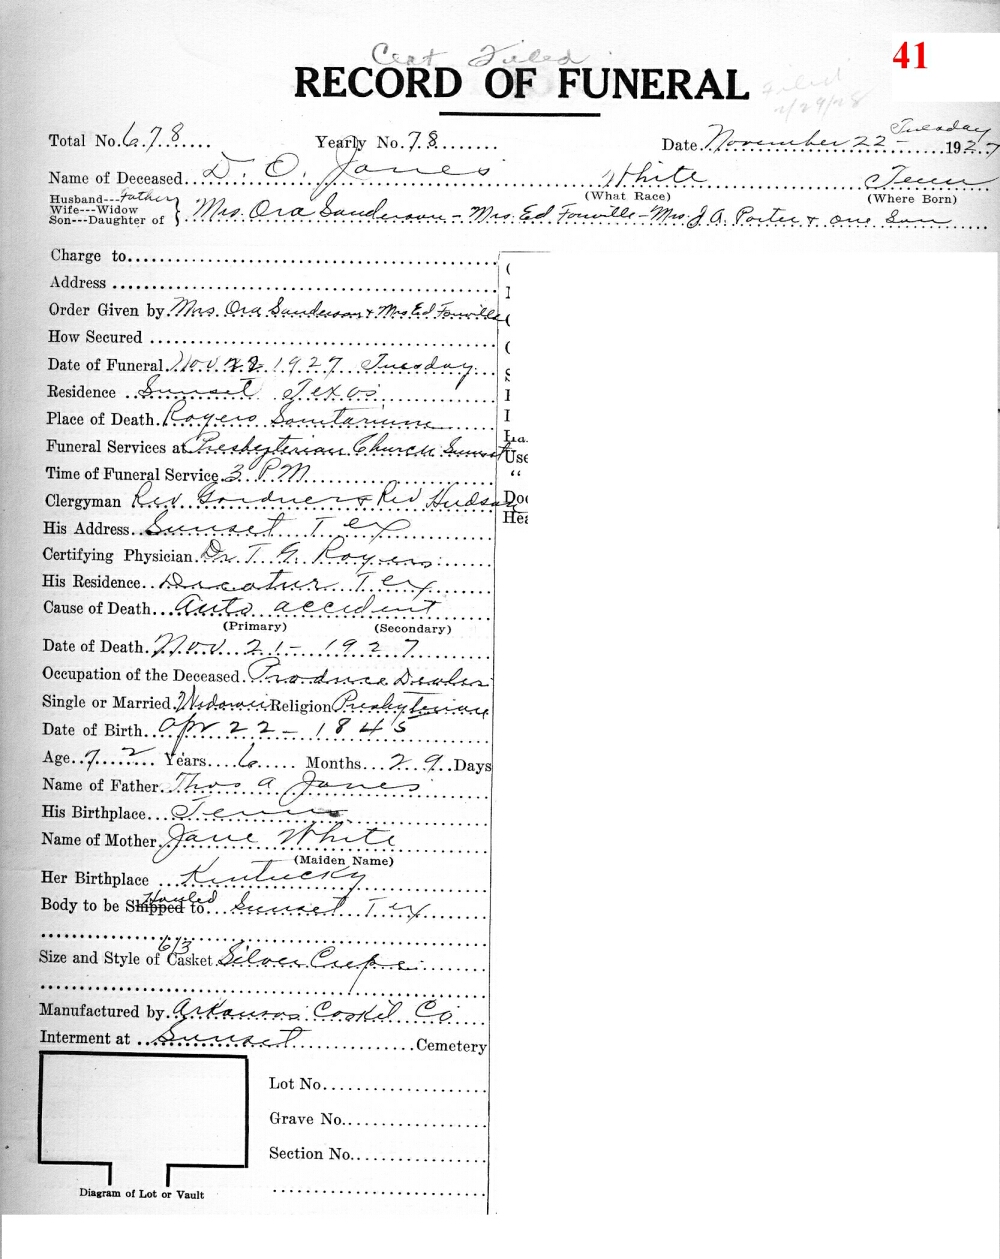 41
Cert Filed
RECORD OF FUNERAL
Filed
2/29/28
Total No. 678 Yearly No. 78 Date November 22 - Tuesday 1927
Name of Deceased D. O. Jones White Tenn
(What Race) (Where Born)
Husband---Father
Wife---Widow
Son---Daughter of } Mrs. Ora Sanderson - Mrs. Ed Fouville - Mrs. J. A. Porter + one Son
Charge to
Address
Order Given by Mrs. Ora Sanderson + Mrs Ed Fouville
How Secured
Date of Funeral Nov 22 1927 Tuesday
Residence Sunset Texas
Place of Death Rogers Sanitarium
Funeral Services at Presbyterian Church Sunset
Use
Time of Funeral Service 3 P.M.
"
Clergyman Rev. Gardner + Rev Hudson
Doc
Hea
His Address Sunset Tex
Certifying Physician Dr. T. G. Rogers
His Residence Decatur Tex
Cause of Death Auto accident
(Primary) (Secondary)
Date of Death Nov 21 - 1927
Occupation of the Deceased Produce Dealer
Single or Married Widower Religion Presbyterian
Date of Birth Apr 22 - 1845
Age 72 Years 6 Months 29 Days
Name of Father Thos A Jones
His Birthplace Tenn
Name of Mother Jane White
(Maiden Name)
Her Birthplace Kentucky
Body to be Shipped Hauled to Sunset Tex
Size and Style of Casket 6/3 Silver Crepe
Manufactured by Arkansas Coskil Co
Interment at Sunset Cemetery
Lot No.
Grave No.
Section No.
Diagram of Lot or Vault